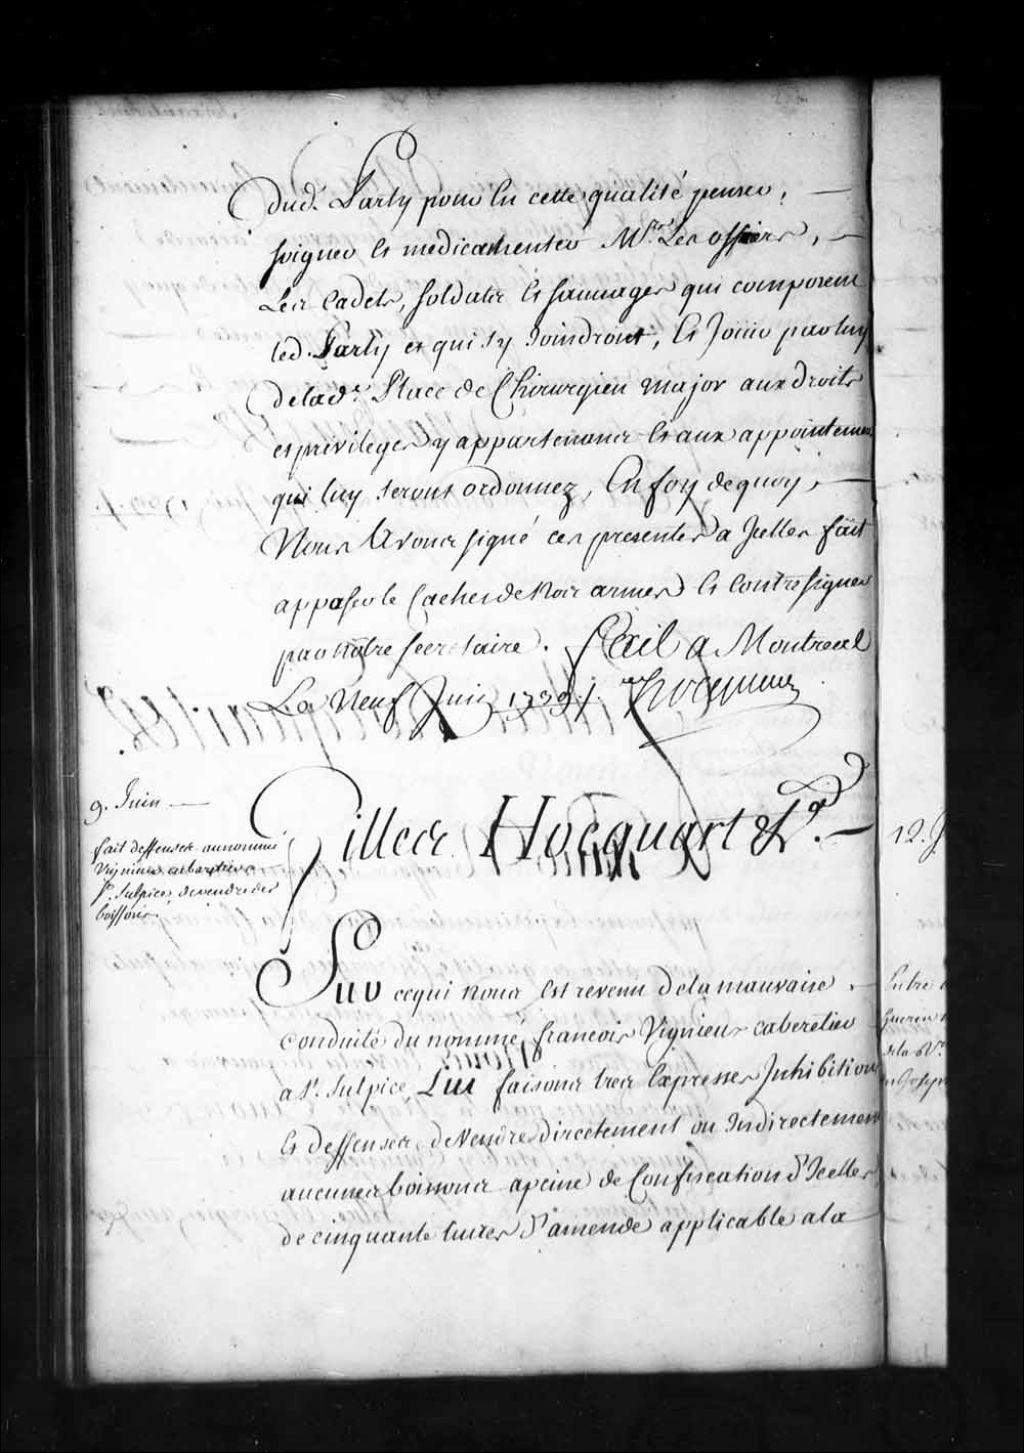 Dud. Party pour En cette qualité penser,
soigner Et medicamenter Mrs. Les officiers,
Les Cadets, soldats Et sauvages qui composent
led. Party et qui s'y Joindront, Et Joüir par luy
de lad.e Place de Chirurgien Major aux droits
et privileges y appartenans Et aux appointemens
qui luy seront ordonnez, En foy dequoy,
Nous Avons signé ces presentes a Jcelles fait
apposer le Cachet de Nos armes Et Contresigner
par nôtre secretaire. Fait a Montreal
Le Neuf Juin 1739 /. Hocquart
9. Juin
fait deffenses au nommé
Vignieux cabaretier a
St. Sulpice, de vendre des
boissons
Gilles Hocquart &ca.
Sur cequi nous Est revenu Dela mauvaise
conduité du nommé, françois Vignieux cabaretier
a St. Sulpice, Lui faisons tres Expresses Jnhibitions
Et deffenses, de Vendre directement ou Indirectement
aucunes boissons apeine de Confiscation D'Jcelles
de cinquante livres D'amende applicable ala
12. J
Entre